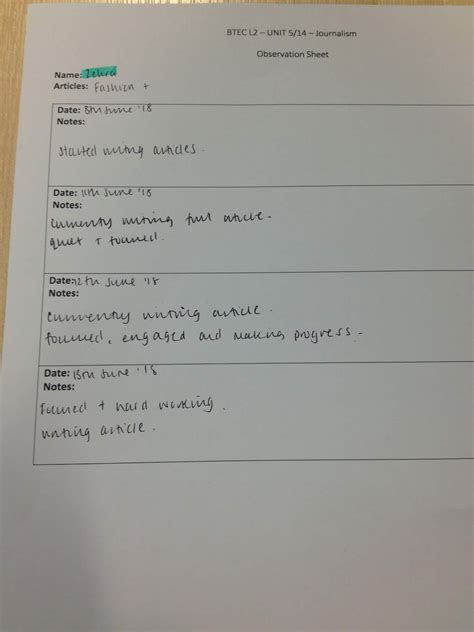 BTEC L2 – UNIT 5/14 – Journalism
Observation Sheet
Name: Zehra
Articles: Fashion +
Date: 8th June '18
Notes:
started writing articles.
Date: 11th June '18
Notes:
Currently writing first article -
quiet + focused.
Date: 12th June '18
Notes:
Currently writing article.
focused, engaged and making progress -
Date: 13th June '18
Notes:
Focused + hard working.
writing article.